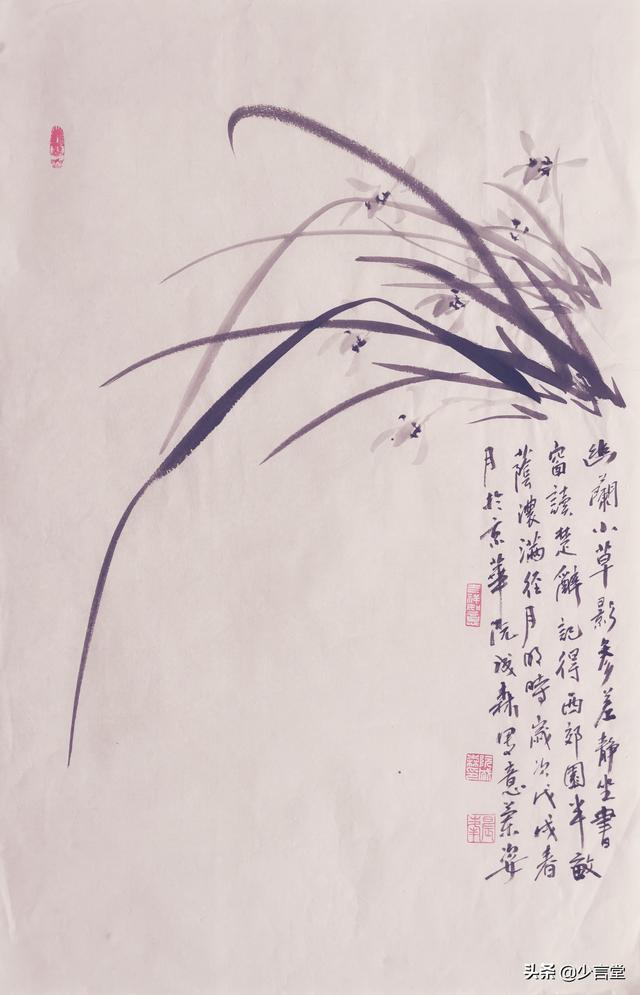 幽蘭小草影参差静坐書
窗讀楚辭記得西郊園半畝
蔭濃滿徑月明時歲次戊戌春
月於京華阮成森寫意蘭姿
头条 @少言堂